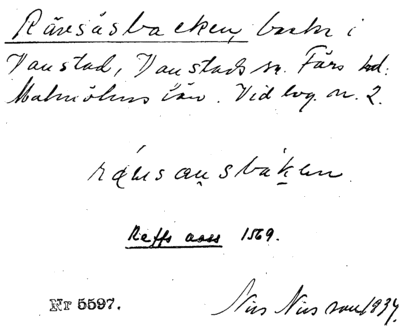 Rävsåsbacken, backe i
Vanstad, Vanstads sn. Färs hd.
Malmöhus län. Vid lvg. nr. 2.
Reffs aass 1569.
Nr 5597.
Nils Nilsson 1934.